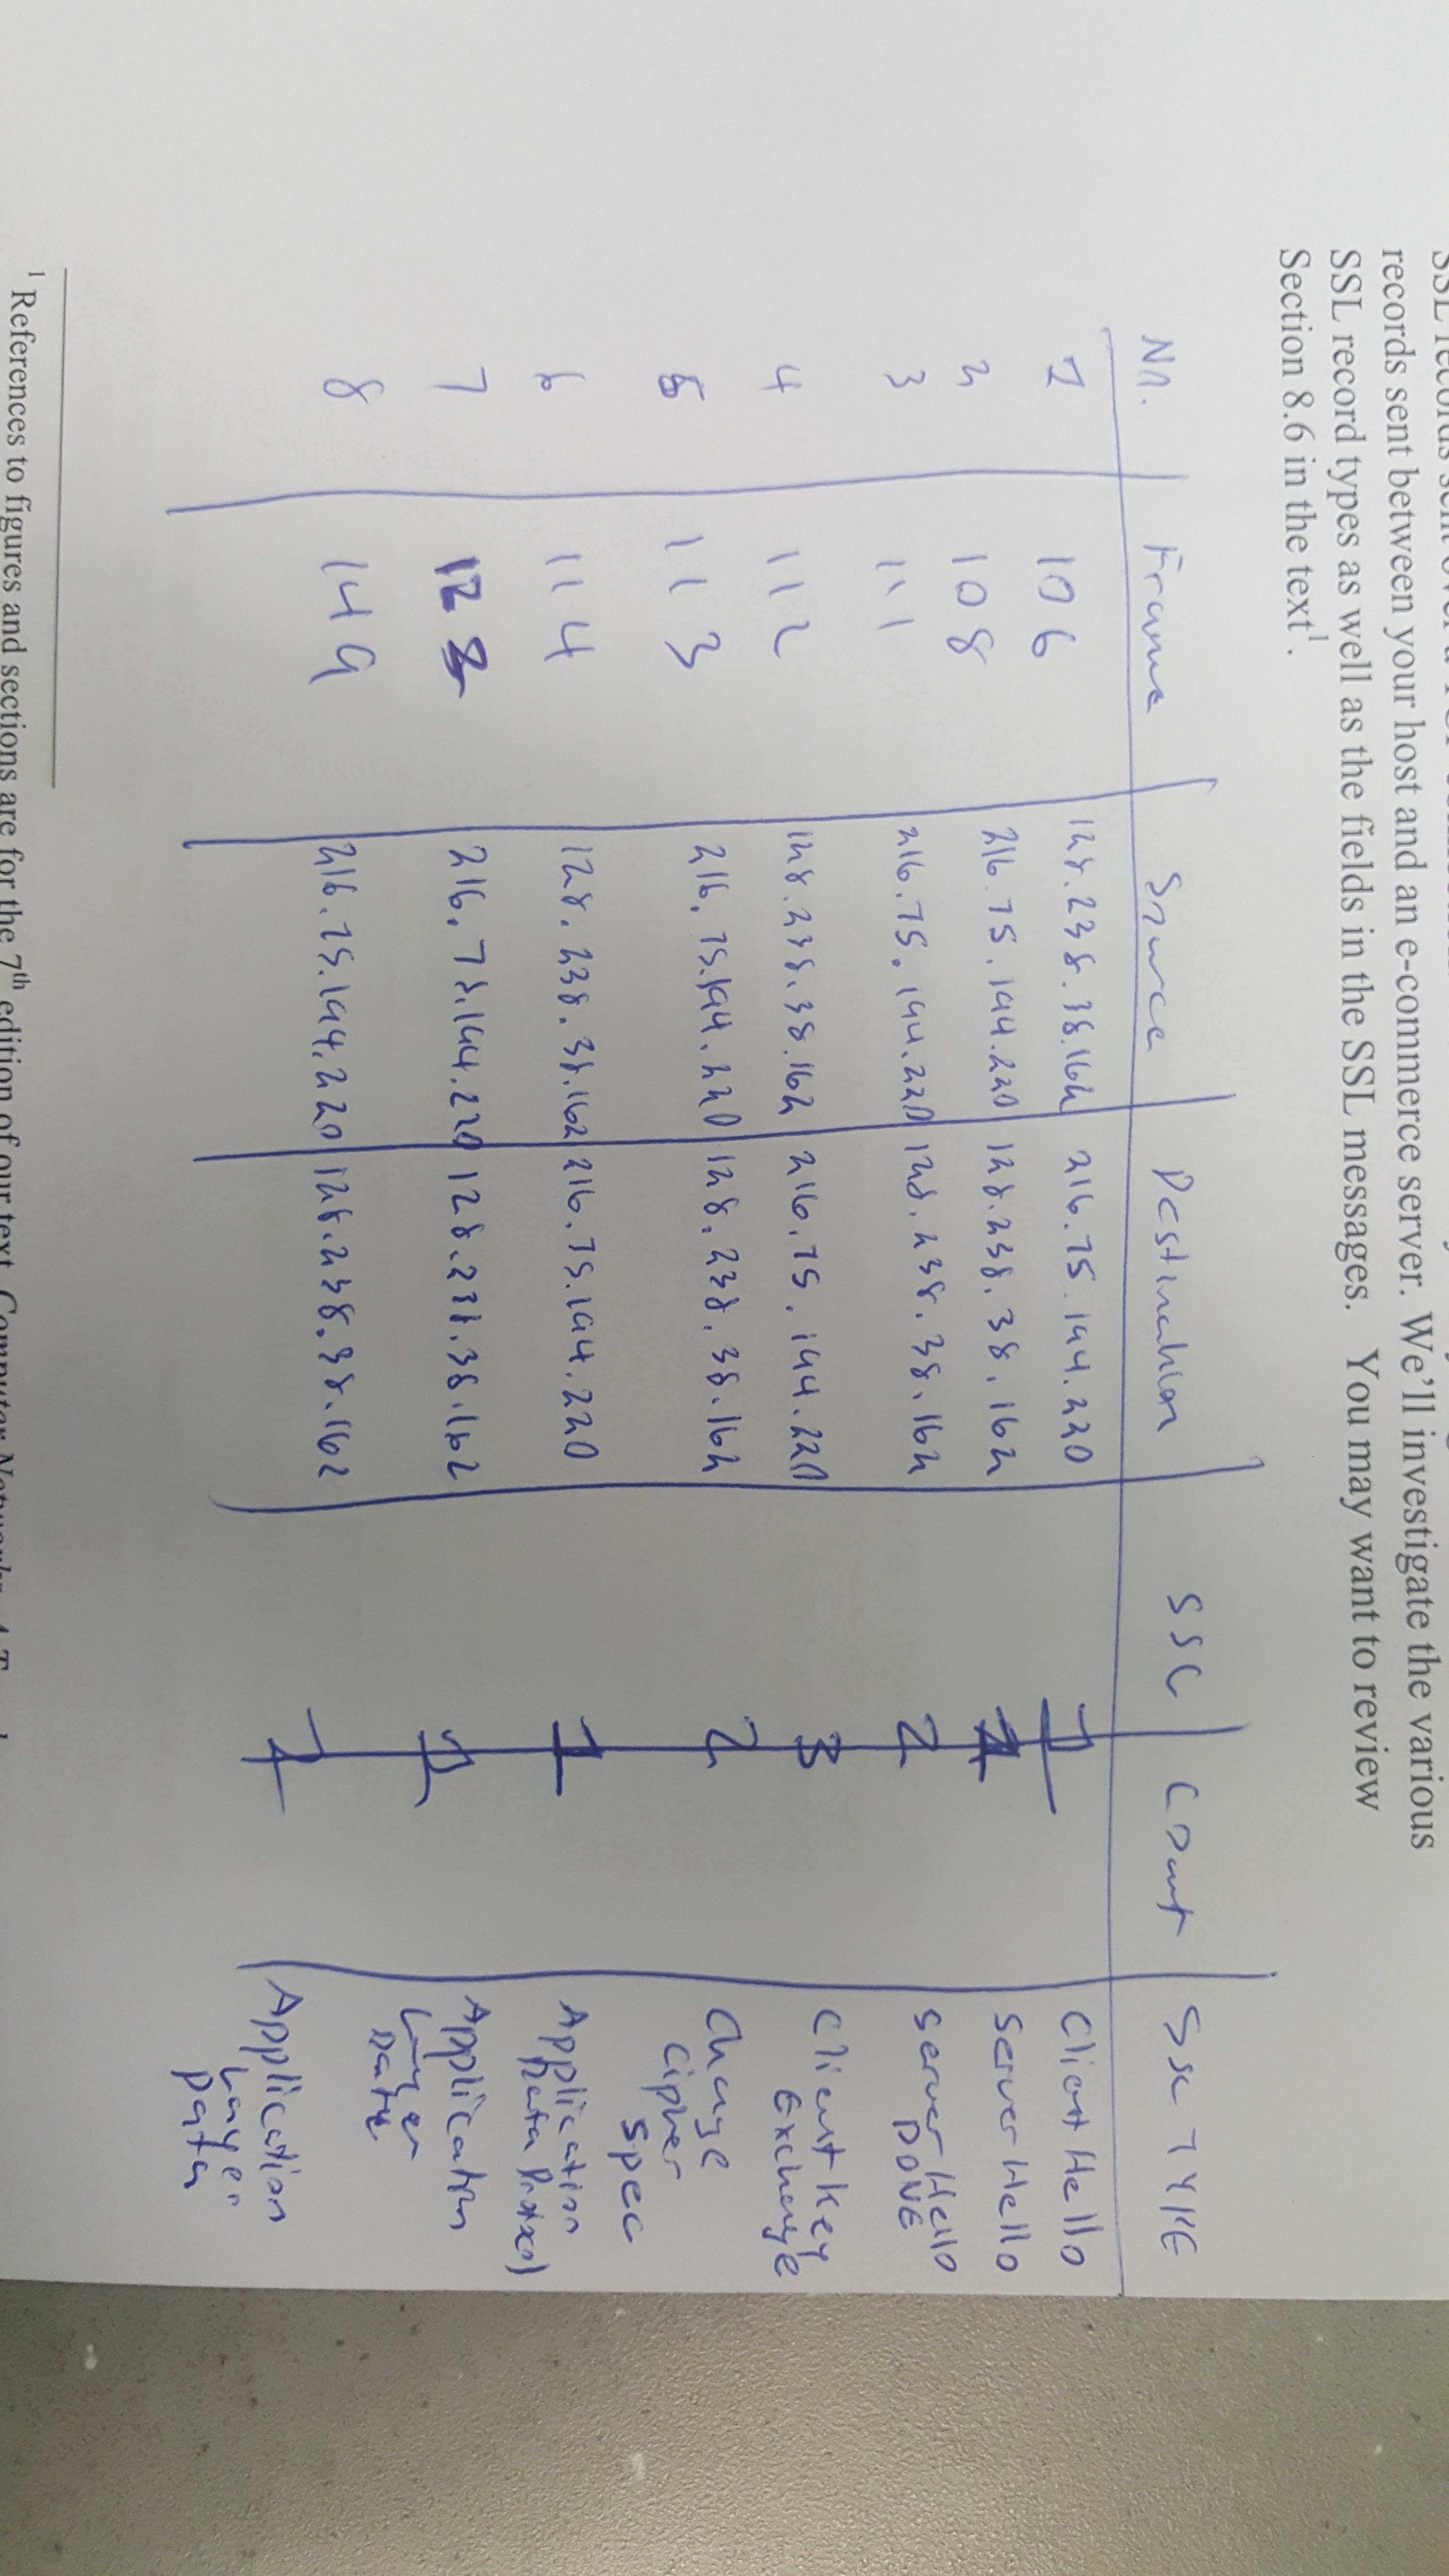 records sent between your host and an e-commerce server. We'll investigate the various
SSL record types as well as the fields in the SSL messages. You may want to review
Section 8.6 in the text¹.
No. Frame Source Destination SSL Count SSL TYPE
1 106 128.238.38.162 216.75.194.220 1 Client Hello
2 108 216.75.194.220 128.238.38.162 1 Server Hello
3 111 216.75.194.220 128.238.38.162 2 Server Hello
DONE
4 112 128.238.38.162 216.75.194.220 3 Client Key
Exchange
5 113 216.75.194.220 128.238.38.162 2 Change
Cipher
Spec
6 114 128.238.38.162 216.75.194.220 1 Application
Data
7 12 216.75.194.220 128.238.38.162 Application
Layer
Data
8 149 216.75.194.220 128.238.38.162 1 Application
Layer
Data
¹ References to figures and sections are for the 7th edition of our text, Computer